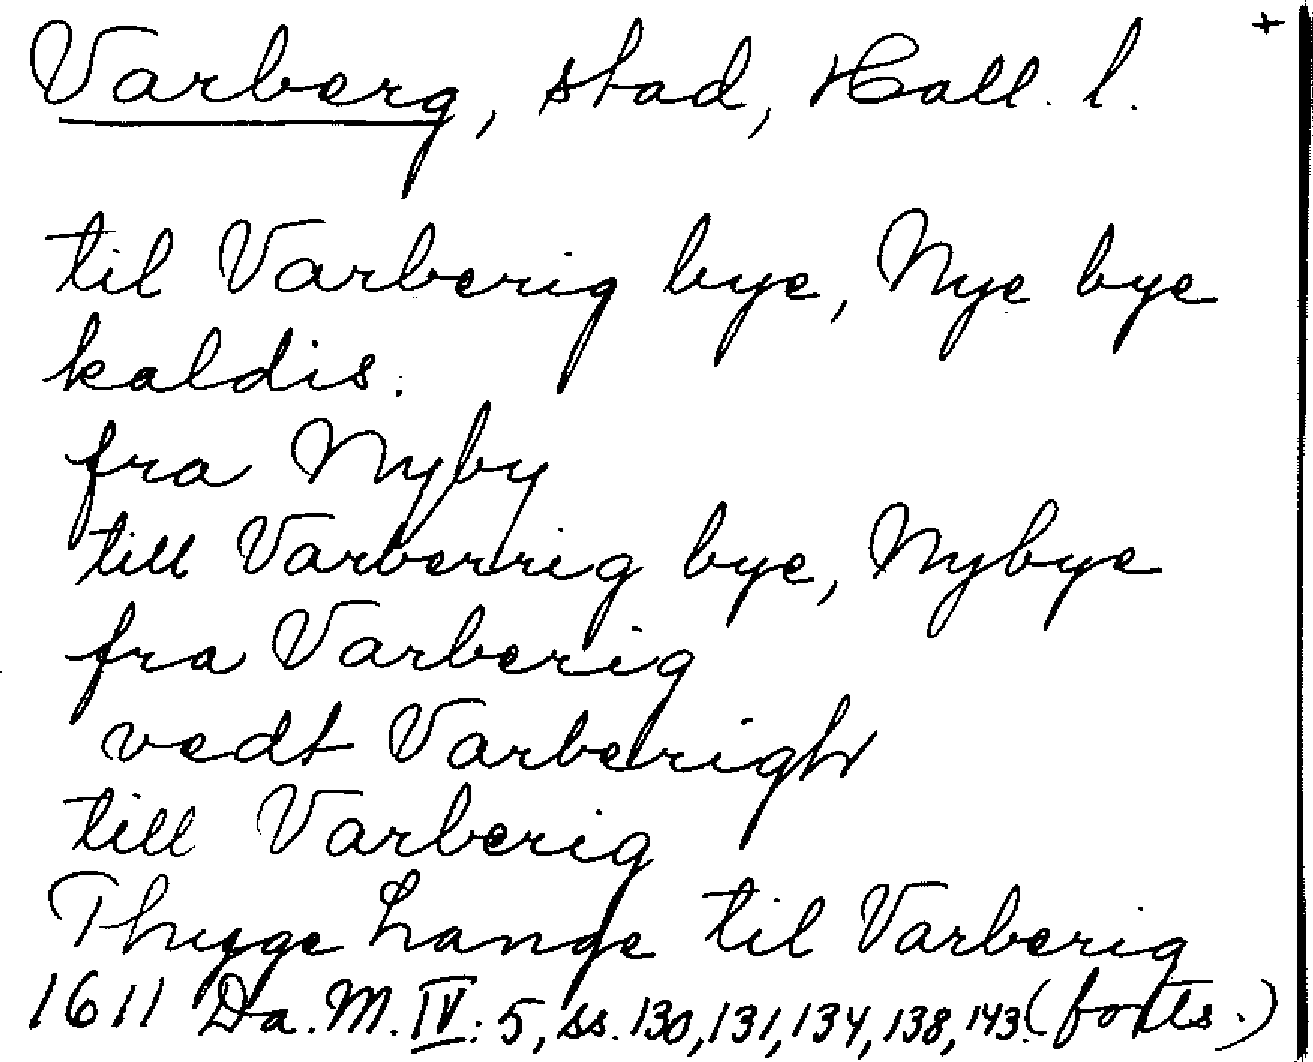 Varberg, stad, Hall. l. +
til Varberig bye, Nye bye
kaldis.
fra Nyby
till Varberrig bye, Nybye
fra Varberig
vedt Varberigh
till Varberig
Thygge Lange til Varberig
1611 Da. M. IV: 5, ss. 130, 131, 134, 138, 143. (forts.)